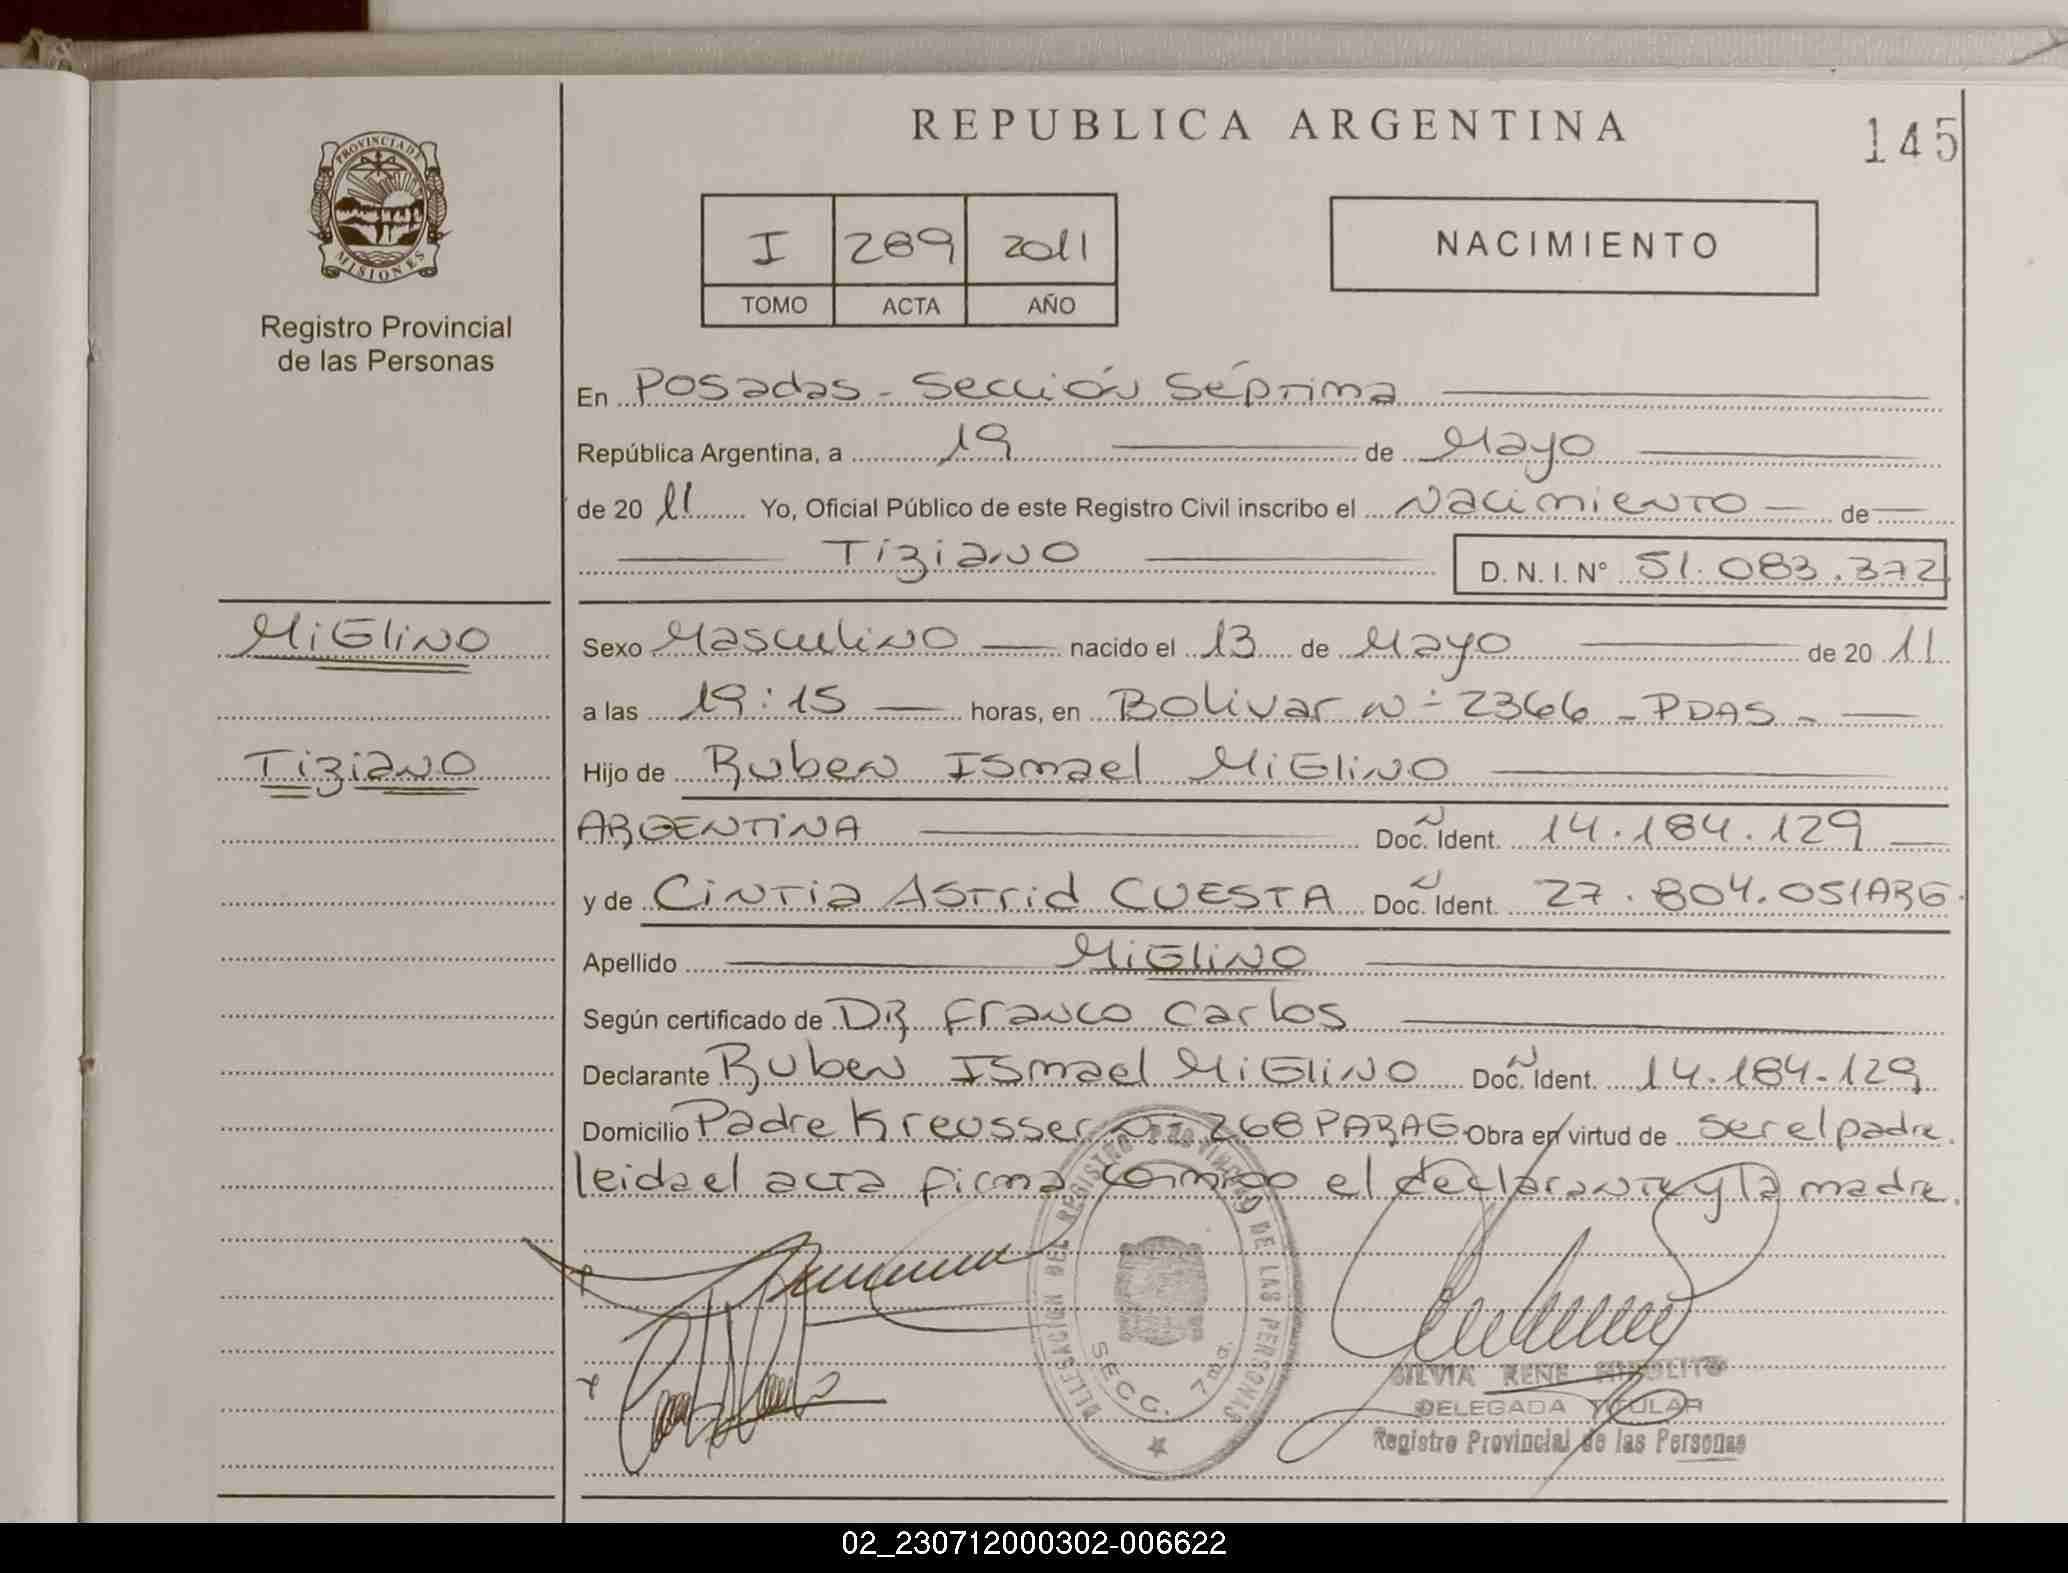 REPUBLICA ARGENTINA
145
PROVINCIA DE
MISIONES
Registro Provincial
de las Personas
I 289 2011
TOMO ACTA AÑO
NACIMIENTO
En Posadas - Sección Séptima
República Argentina, a 19 de Mayo
de 20 11 Yo, Oficial Público de este Registro Civil inscribo el Nacimiento de
Tiziano D. N. I. N° 51.083.372
MiGliNO
Sexo Masculino nacido el 13 de Mayo de 20 11
a las 19:15 horas, en Bolivar N° 2366 - PDAS -
Tiziano
Hijo de Ruben Ismael MiGliNO
ARGENTINA Doc. Ident. 14.184.129
y de Cintia Astrid CUESTA Doc. Ident. 27.804.051 ARG.
Apellido MiGliNO
Según certificado de DR Franco Carlos
Declarante Ruben Ismael MiGliNO Doc. Ident. 14.184.129
Domicilio Padre Kreusser N° 268 PARAG Obra en virtud de ser el padre.
leida el acta firma conmigo el declarante y la madre.
DELEGACION DEL REGISTRO PROVINCIAL DE LAS PERSONAS
SECC. 7ma.
SILVIA RENE HIPOLITO
DELEGADA TITULAR
Registro Provincial de las Personas
02_230712000302-006622